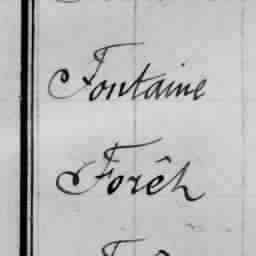 Fontaine
Forêt